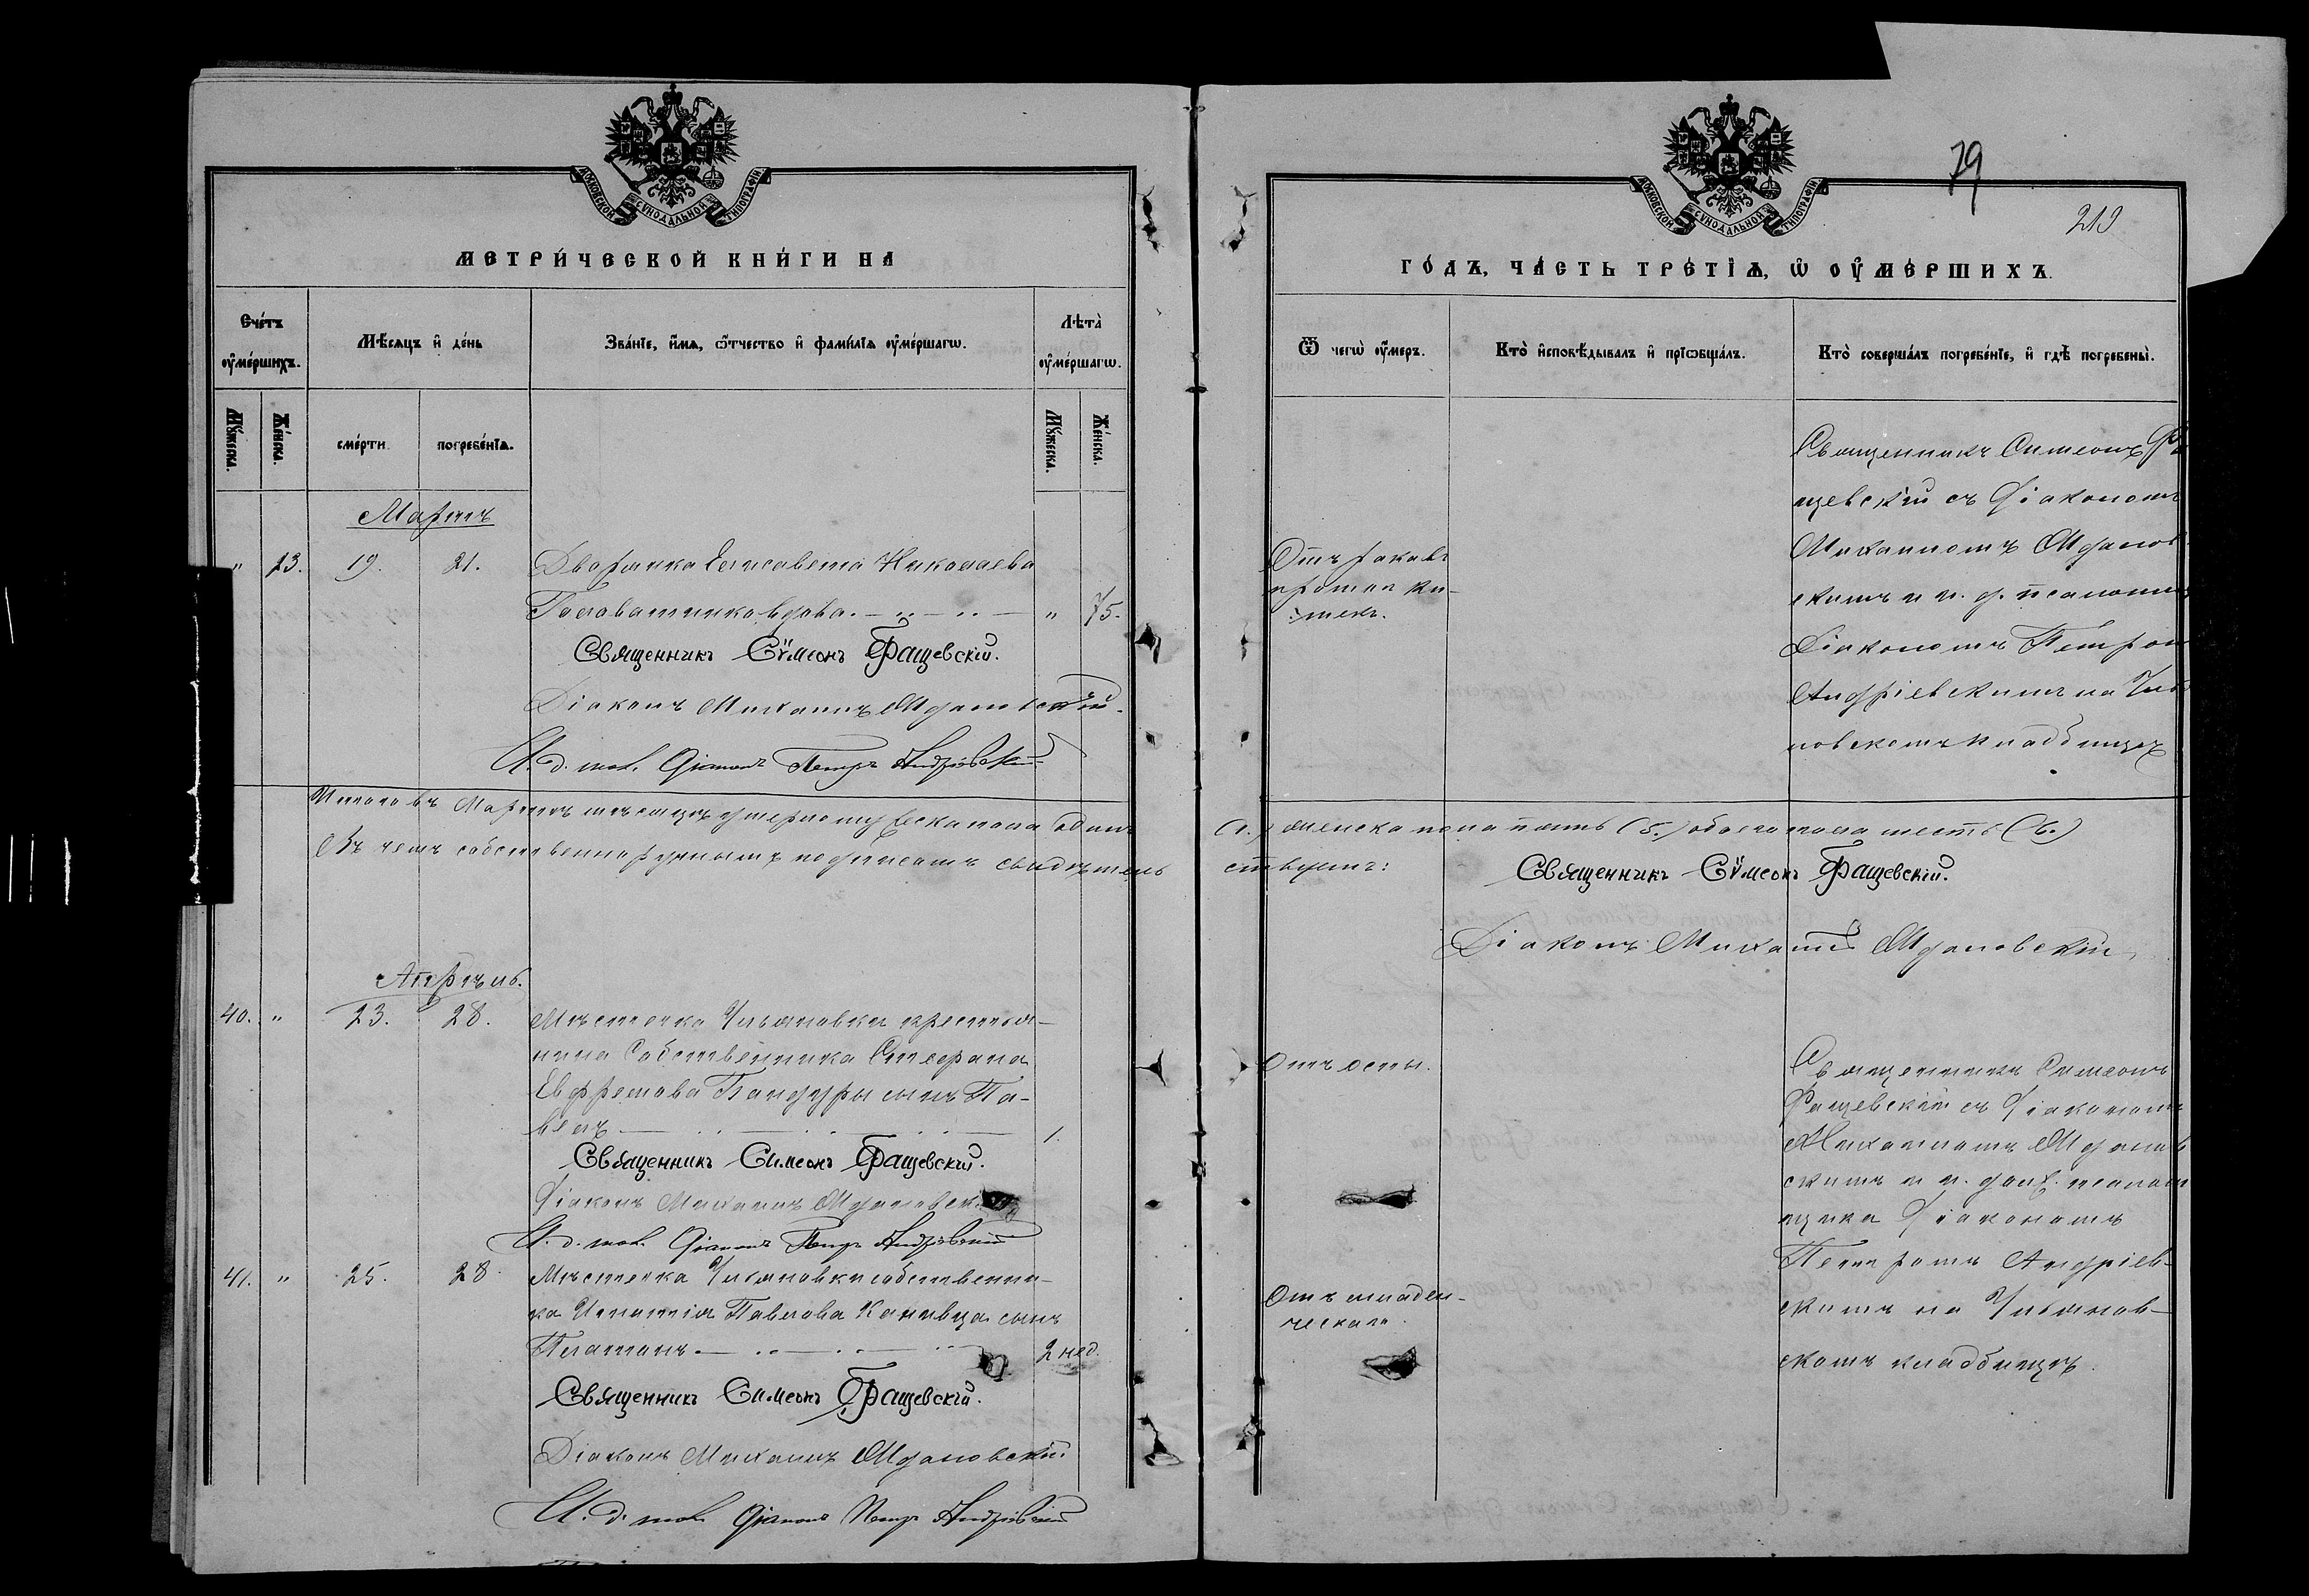 МОСКОВСКОЙ СѴНОДАЛЬНОЙ ТИПОГРАФІИ
МЕТРИ́ЧЕСКОЙ КНИ́ГИ НА
Сче́тъ оу҆ме́ршихъ.
Мѣ́сяцъ и҆ де́нь
Зва́нїе, и҆́мя, ѻ҆́тчество и҆ фами́лїя оу҆ме́ршагѡ.
Лѣта̀ оу҆ме́ршагѡ.
Му́жеска.
Же́нска.
сме́рти.
погребе́нїя.
Му́жеска.
Же́нска.
Мартъ
" 23. 19. 21. Дворянка Елисавета Николаева
вдова. " 75.
Священникъ Сѵмеонъ Фащевскій.
Діаконъ Михаилъ
И. д. Діаконъ Петръ Андріевскій
Итого въ Мартѣ мѣсяцѣ умерло мужеска пола одинъ
Въ чемъ собственноручнымъ подписомъ свидѣтель
Апрѣль.
40. " 23. 28. Мѣстечка Ульяновки крестья-
нина Собственника Стефана
Евфремова Бандуры сынъ Па-
велъ 1.
Священникъ Симеонъ Фащевскій.
Діаконъ Михаилъ
И. д. Діаконъ Петръ Андріевскій
41. " 25. 28. Мѣстечка Ульяновки собственни-
ка Игнатія Павлова сынъ
Платонъ 2 нед.
Священникъ Симеонъ Фащевскій.
Діаконъ Михаилъ
И. д. Діаконъ Петръ Андріевскій
МОСКОВСКОЙ СѴНОДАЛЬНОЙ ТИПОГРАФІИ
79
219
ГО́ДЪ, ЧА́СТЬ ТРЕ́ТЇЯ, Ѡ҆ ОУ҆МЕ́РШИХЪ.
Ѿ чегѡ̀ оу҆́меръ.
Кто̀ и҆сповѣ́дывалъ и҆ прїѡбща́лъ.
Кто̀ соверша́лъ погребе́нїе, и҆ гдѣ̀ погребены̀.
Священникъ Симеонъ Фа
щевскій съ Діакономъ
Михаиломъ
скимъ и и. д. псаломщ
Діакономъ Петромъ
Андріевскимъ на Улья
новскомъ кладбищѣ
Отъ рака въ
(1.) женска пола пять (5.) обоего пола шесть (6.)
ствуемъ:
Священникъ Сѵмеонъ Фащевскій.
Діаконъ Михаилъ
Отъ оспы.
Священникъ Симеонъ
Фащевскій съ Діакономъ
Михаиломъ
скимъ и и. долж. псалом
щика Діакономъ
Петромъ Андріев-
скимъ на Ульянов-
скомъ кладбищѣ.
Отъ младен-
ческаго.